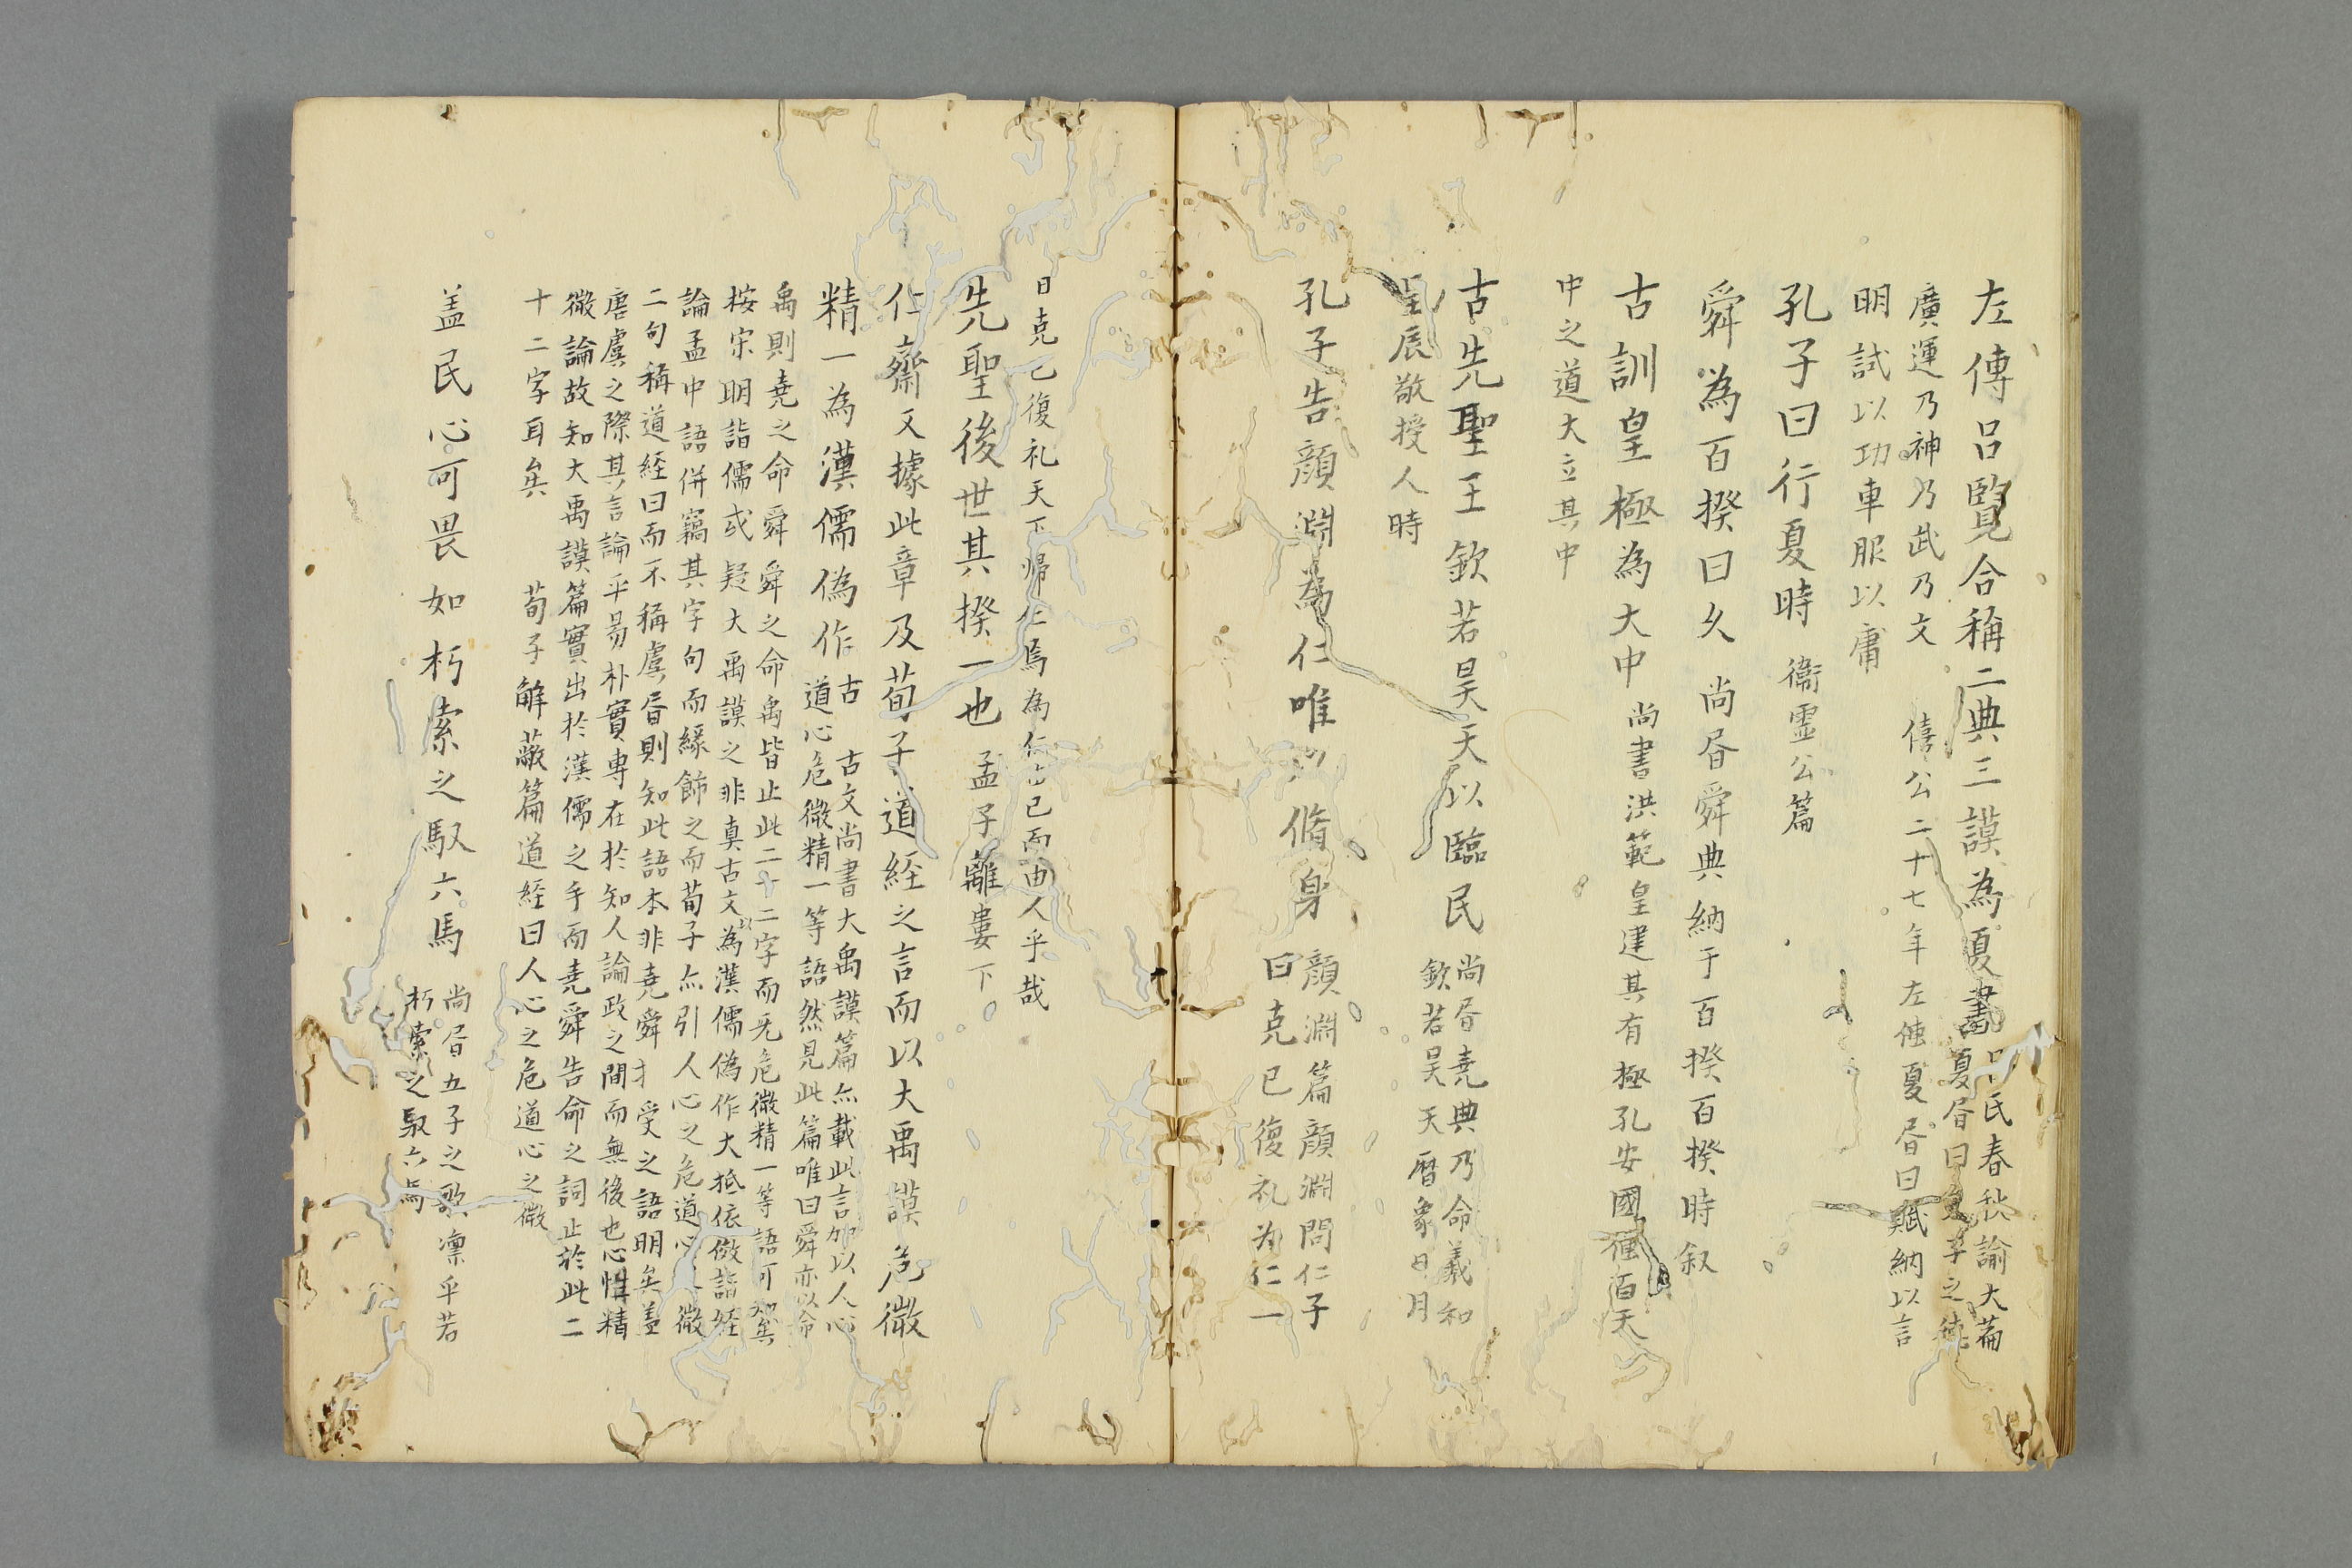 左傳呂覧合稱二典三謨為夏書
呂氏春秋諭大萹
夏昏曰天子之德
廣運乃神乃武乃文
僖公二十七年左傳夏昏曰賦納以言
明試以功車服以庸
孔子曰行夏時
衞霊公篇
舜為百揆曰久
尚昏舜典納于百揆百揆時叙
古訓皇極為大中
尚書洪範皇建其有極孔安國傳百天
中之道大立其中
古先聖王欽若昊天以臨民
尚昏堯典乃命羲和
欽若昊天曆象日月
星辰敬授人時
孔子告顔淵為仁唯以脩身
顔淵篇顔淵問仁子
曰克己復礼为仁一
日克己復礼天下帰仁焉為仁由己而由人乎哉
先聖後世其揆一也
孟子離婁下
仁齋又據此章及荀子道経之言而以大禹謨危微
精一為漢儒偽作
古文尚書大禹謨篇亦載此言加以人心
道心危微精一等語然見此篇唯曰舜亦以命
禹則堯之命舜舜之命禹皆止此二十二字而旡危微精一等語可知矣
桉宋明諸儒或疑大禹謨之非真古文以為漢儒偽作大抵依倣諸経
論孟中語併竊其字句而緣飾之而荀子亦引人心之危道心之微
二句稱道経曰而不稱虞昏則知此語本非堯舜才受之語明矣盖
唐虞之際其言論平易朴實専在於知人論政之間而無後世心惟精
微論故知大禹謨篇實出於漢儒之手而堯舜告命之詞止於此二
十二字耳矣
荀子解蔽篇道経曰人心之危道心之微
盖民心可畏如朽索之馭六馬
尚昏五子之歌凛乎若
朽索之馭六馬